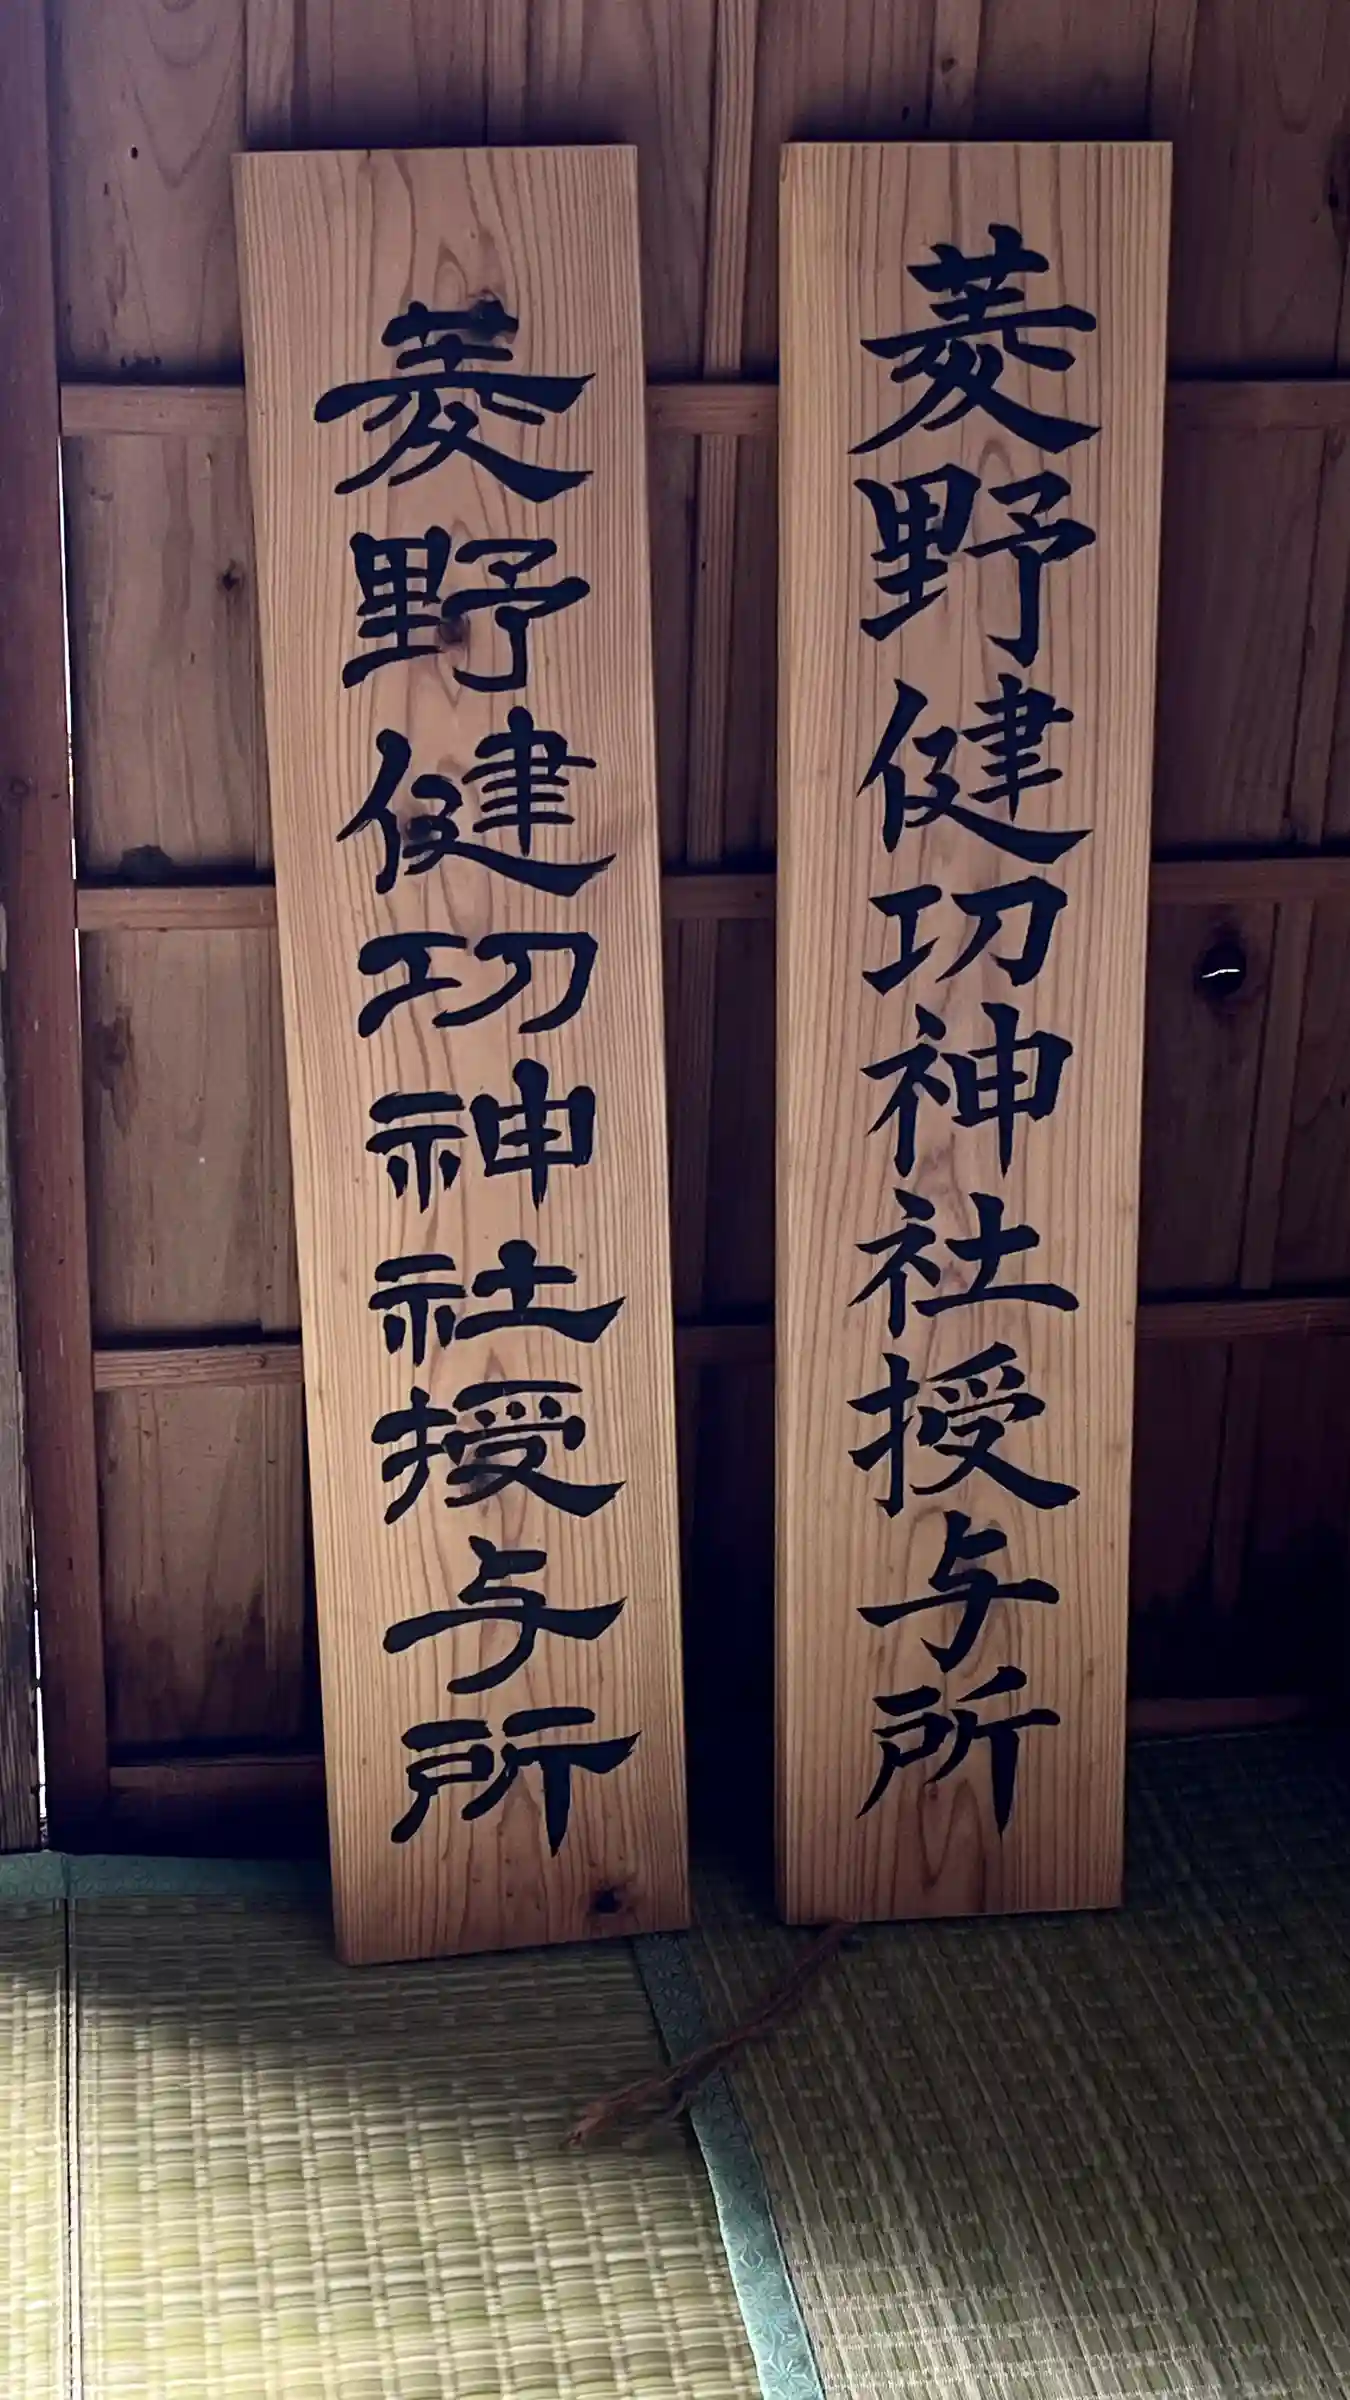 菱野健功神社授与所
菱野健功神社授与所